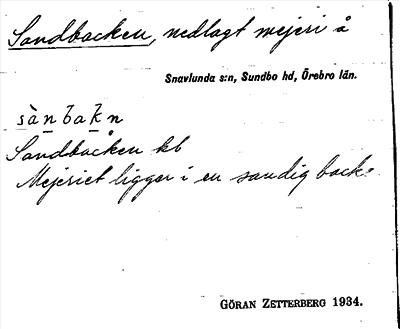 Sandbacken, nedlagt mejeri å
Snavlunda s:n, Sundbo hd, Örebro län.
sànbakn
Sandbacken kb
Mejeriet ligger i en sandig backe.
GÖRAN ZETTERBERG 1934.